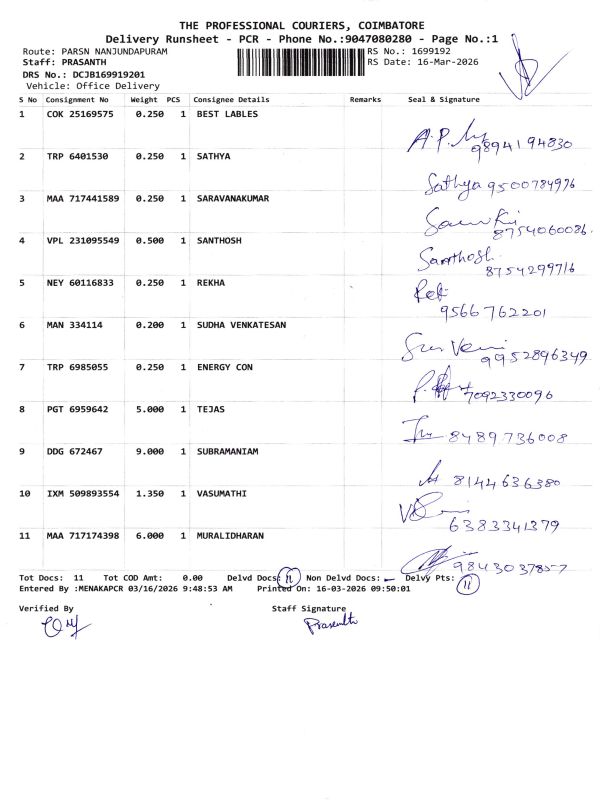 THE PROFESSIONAL COURIERS, COIMBATORE
Delivery Runsheet - PCR - Phone No.:9047080280 - Page No.:1
Route: PARSN NANJUNDAPURAM RS No.: 1699192
Staff: PRASANTH RS Date: 16-Mar-2026
DRS No.: DCJB169919201
Vehicle: Office Delivery
S No Consignment No Weight PCS Consignee Details Remarks Seal & Signature
1 COK 25169575 0.250 1 BEST LABLES
9894194830
2 TRP 6401530 0.250 1 SATHYA
Sathya 9500784996
3 MAA 717441589 0.250 1 SARAVANAKUMAR
8754060086.
4 VPL 231095549 0.500 1 SANTHOSH
Santhosh
8754299716
5 NEY 60116833 0.250 1 REKHA
9566762201
6 MAN 334114 0.200 1 SUDHA VENKATESAN
9952896349
7 TRP 6985055 0.250 1 ENERGY CON
7092330096
8 PGT 6959642 5.000 1 TEJAS
8489736008
9 DDG 672467 9.000 1 SUBRAMANIAM
8144636380
10 IXM 509893554 1.350 1 VASUMATHI
6383341379
11 MAA 717174398 6.000 1 MURALIDHARAN
9843037857
Tot Docs: 11 Tot COD Amt: 0.00 Delvd Docs: 11 Non Delvd Docs: — Delvy Pts: 11
Entered By :MENAKAPCR 03/16/2026 9:48:53 AM Printed On: 16-03-2026 09:50:01
Verified By Staff Signature
Prasanth